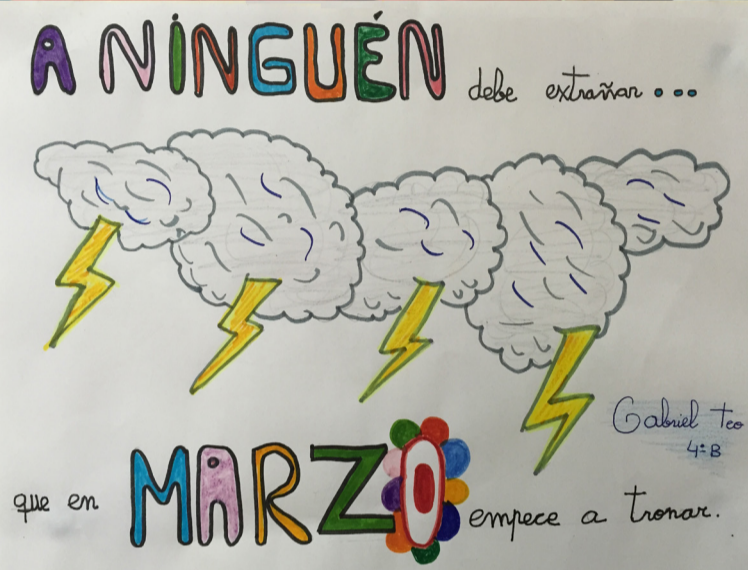 A NINGUÉN debe extrañar...
Gabriel Teo
4º B
que en MARZO empece a tronar.